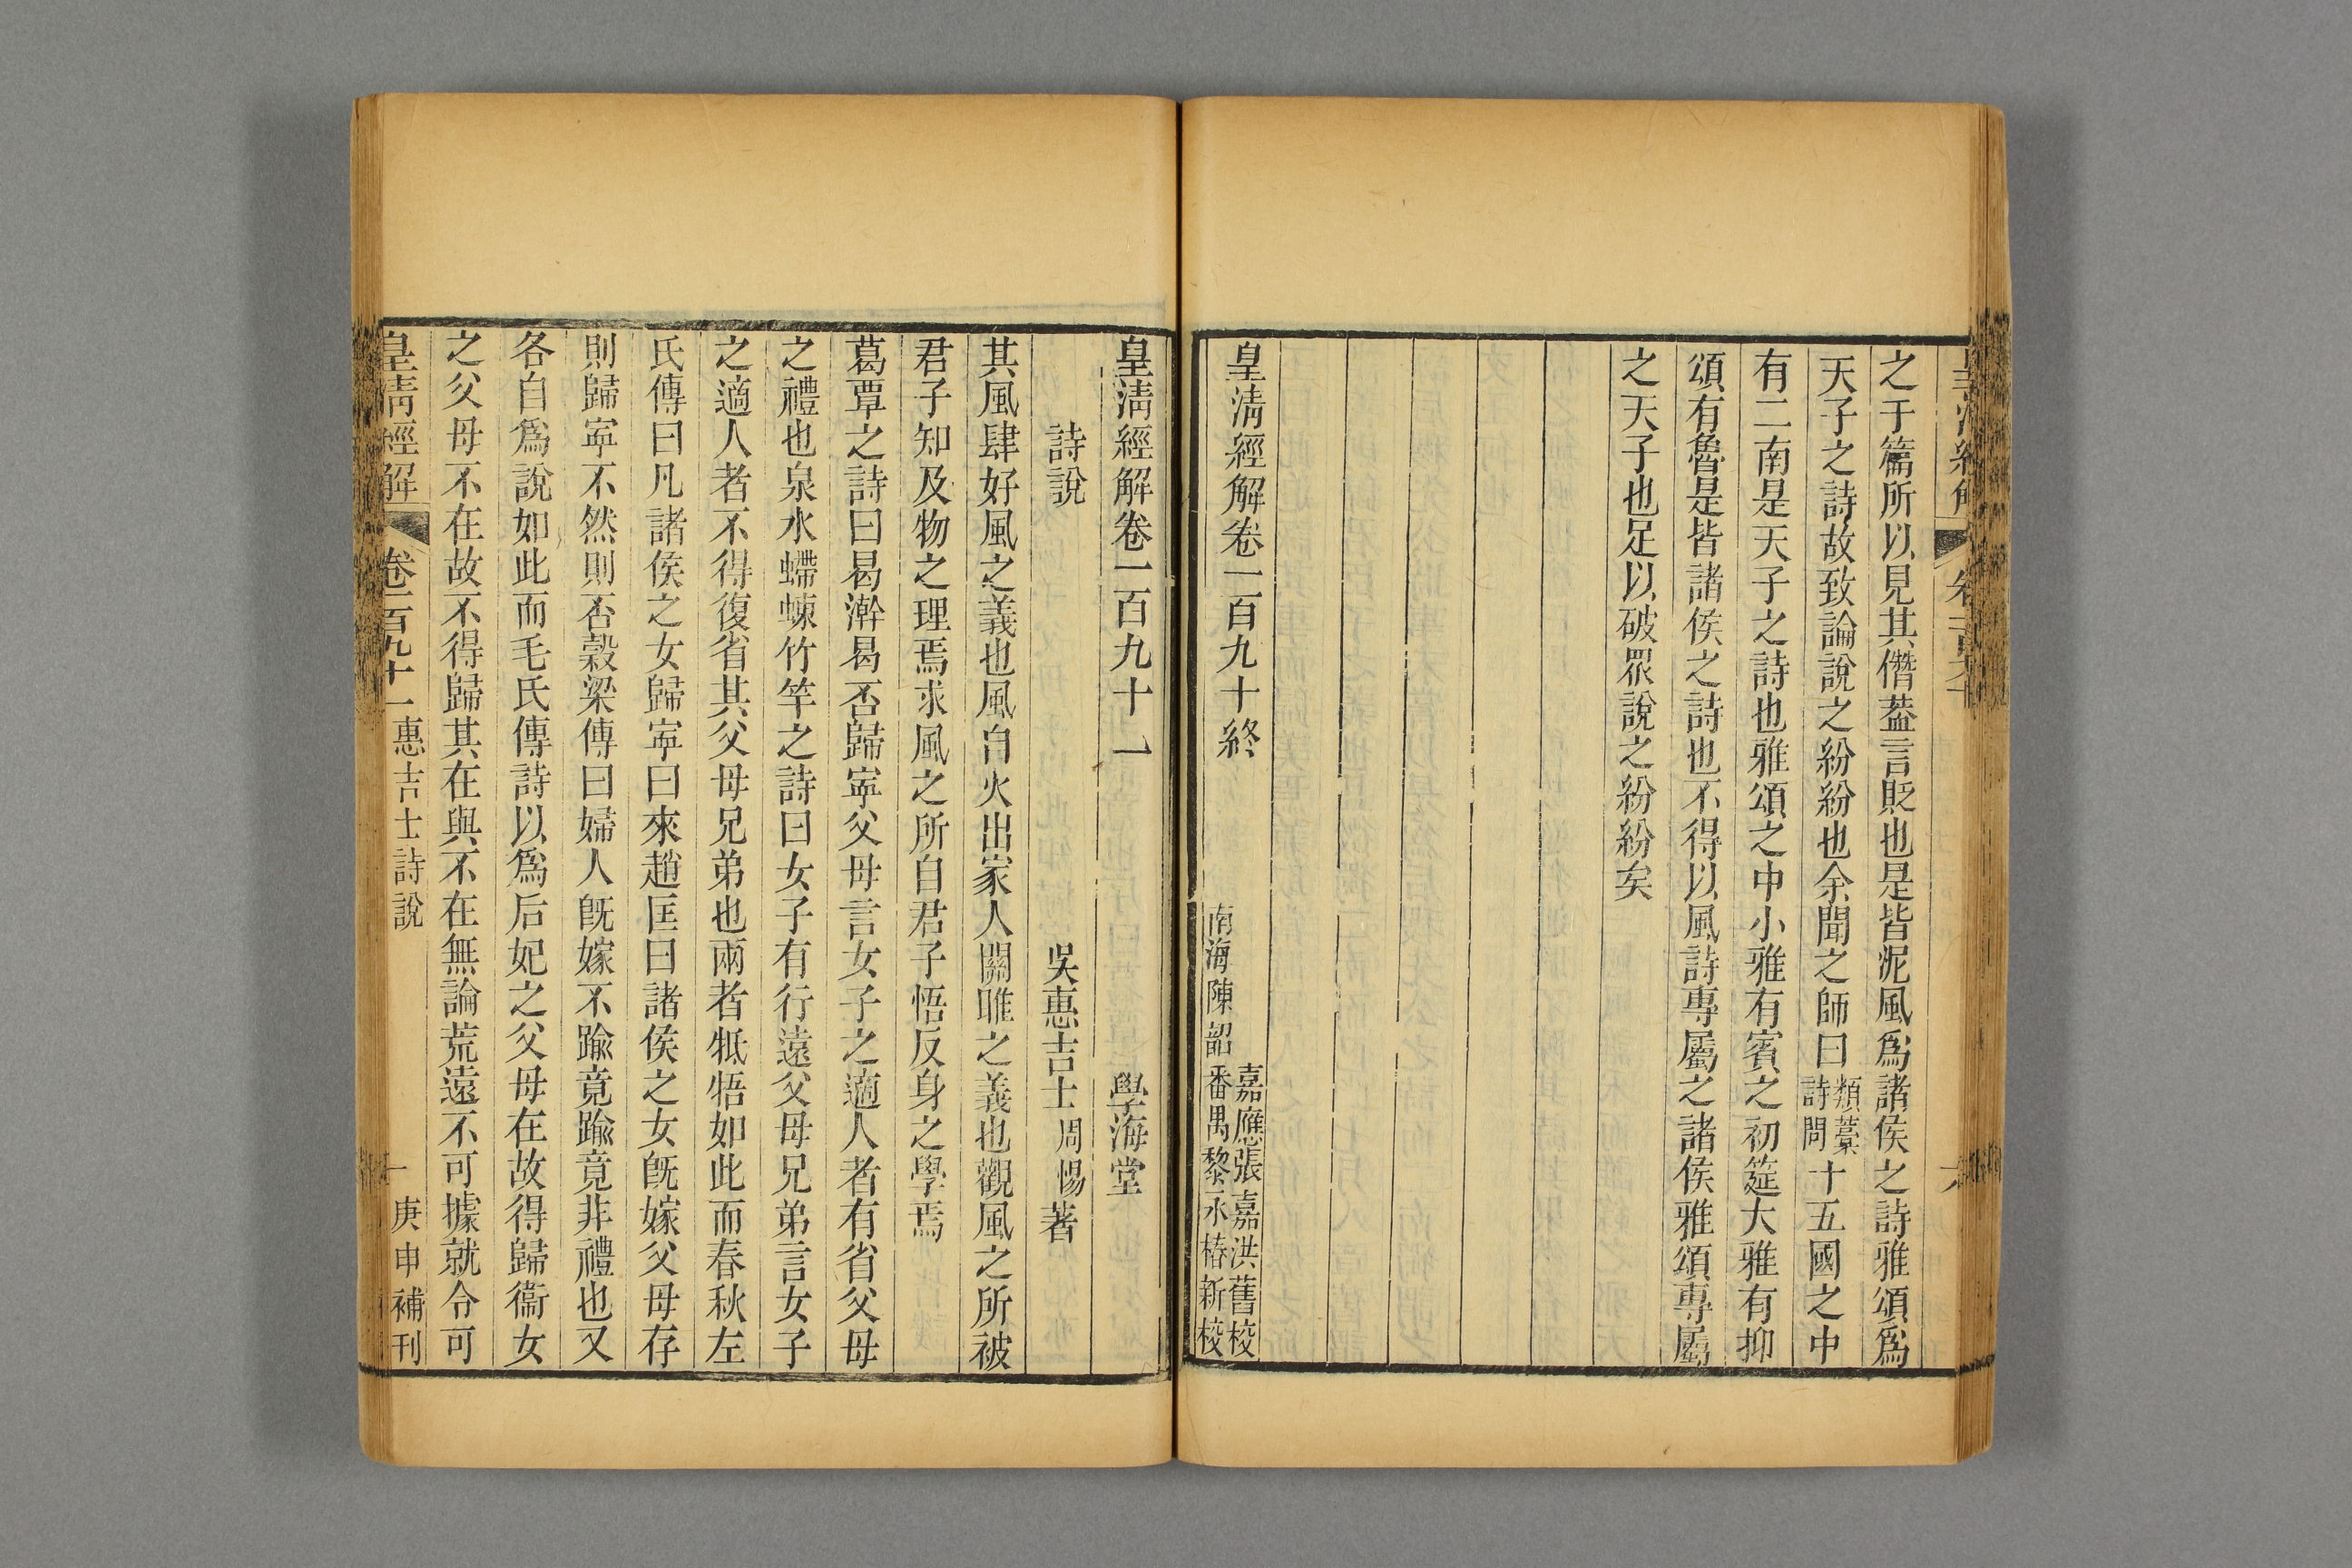 之于篇所以見其僭葢言貶也是皆泥風爲諸侯之詩雅頌爲
天子之詩故致論說之紛紛也余聞之師曰類藁詩問十五國之中
有二南是天子之詩也雅頌之中小雅有賓之初筵大雅有抑
頌有魯是皆諸侯之詩也不得以風詩專屬之諸侯雅頌專屬
之天子也足以破眾說之紛紛矣
皇淸經解卷一百九十終
嘉應張嘉洪舊校
南海陳韶
番禺黎永椿新校
皇淸經解卷一百九十一
學海堂
詩說
吳惠吉士周惕著
其風肆好風之義也風自火出家人關雎之義也觀風之所被
君子知及物之理焉求風之所自君子悟反身之學焉
葛覃之詩曰曷澣曷否歸寧父母言女子之適人者有省父母
之禮也泉水蝃蝀竹竿之詩曰女子有行遠父母兄弟言女子
之適人者不得復省其父母兄弟也兩者牴牾如此而春秋左
氏傳曰凡諸侯之女歸寧曰來趙匡曰諸侯之女旣嫁父母存
則歸寧不然則否穀梁傳曰婦人旣嫁不踰竟踰竟非禮也又
各自爲說如此而毛氏傳詩以爲后妃之父母在故得歸衞女
之父母不在故不得歸其在與不在無論荒遠不可據就令可
皇淸經解
卷一百九十一惠吉士詩說
一
庚申補刊